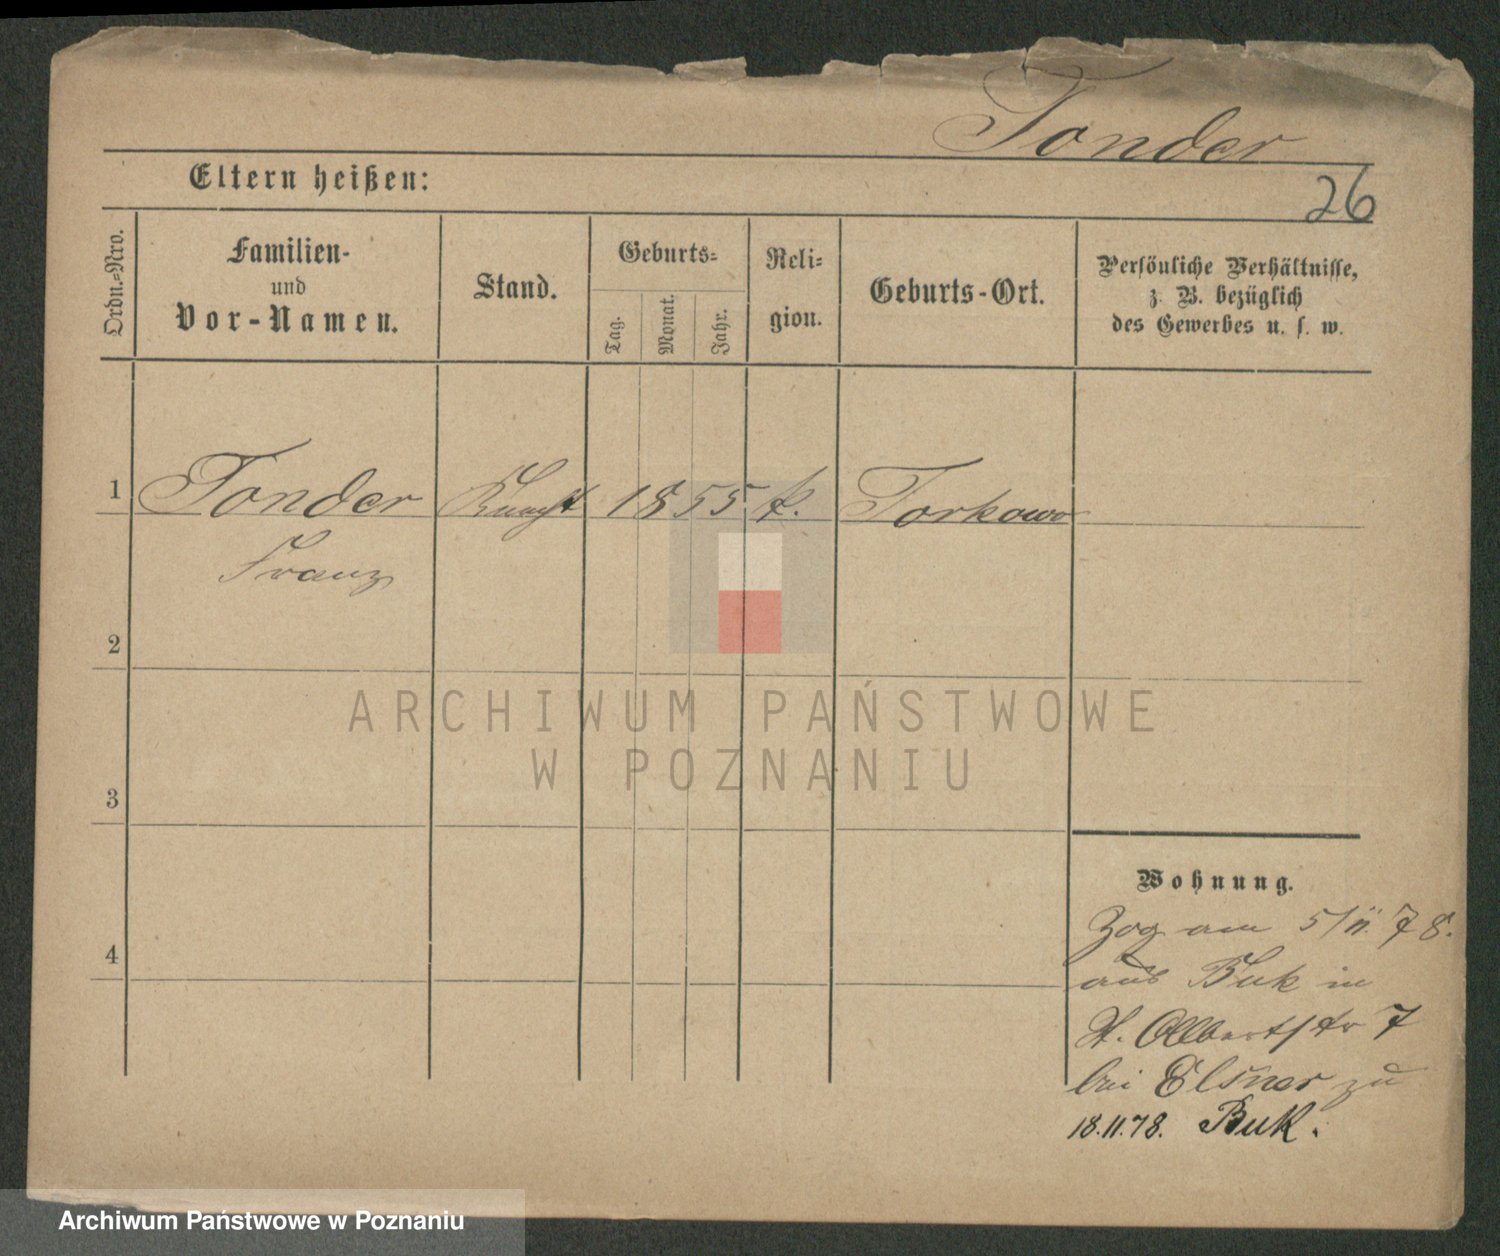 Tonder
Eltern heißen:
26
Ordn.-Nro.
Familien-
und
Vor-Namen.
Stand.
Geburts-
Tag.
Monat.
Jahr.
Reli-
gion.
Geburts-Ort.
Persönliche Verhältnisse,
z. B. bezüglich
des Gewerbes u. s. w.
1 Tonder Knecht 1855 k. Torkowo
Franz
2
3
4
Wohnung.
Zog am 5/11. 78.
aus Buk in
St. Adbertstr 7
bei Elsner zu
18.11.78. Buk.
ARCHIWUM PAŃSTWOWE
W POZNANIU
Archiwum Państwowe w Poznaniu